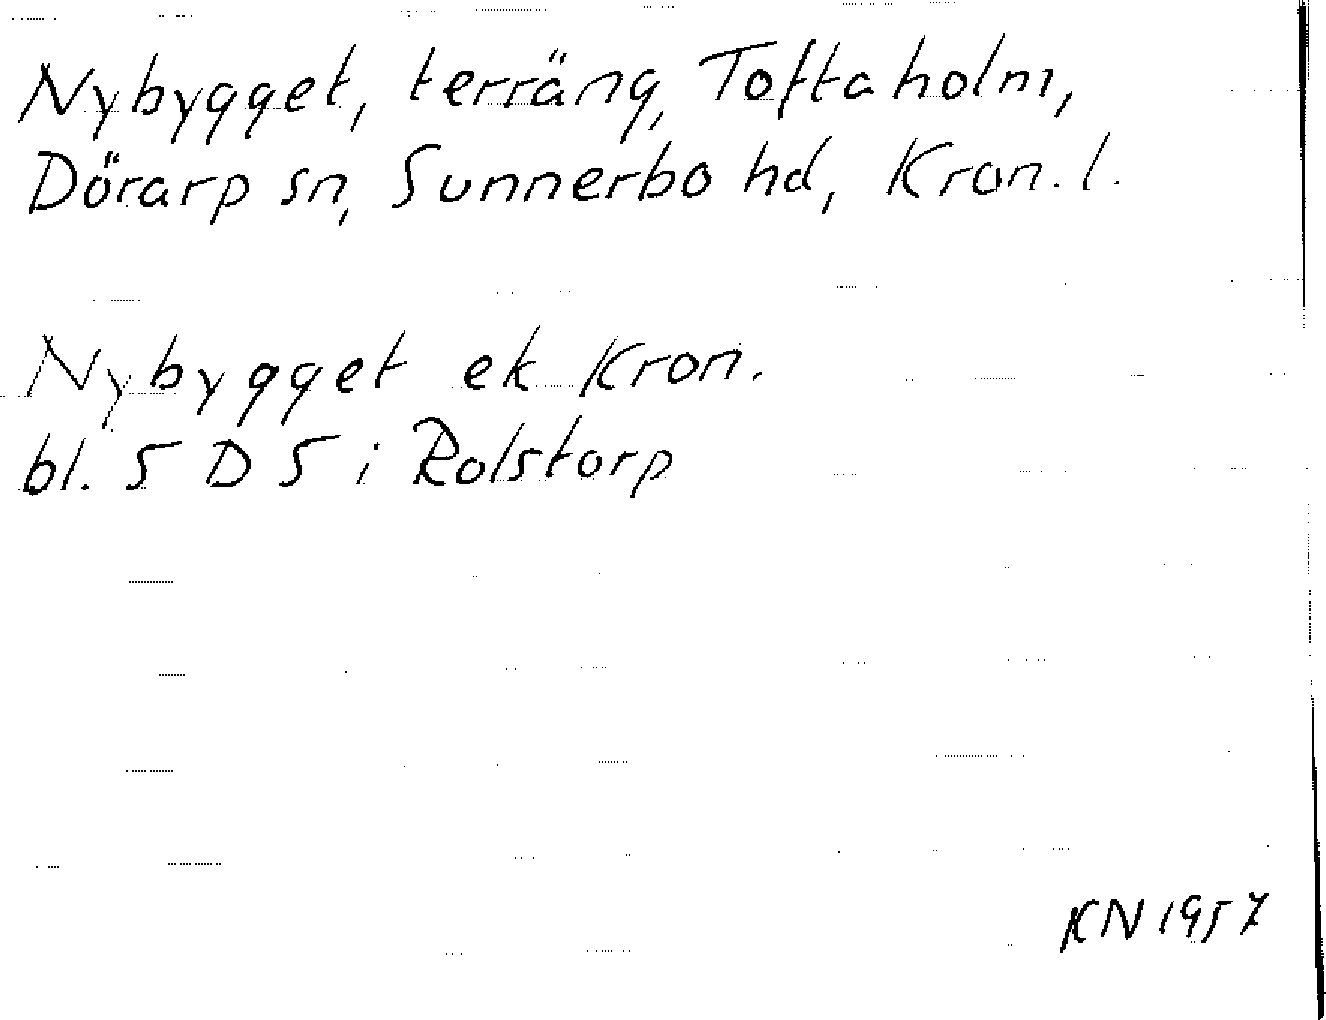 Nybygget, terräng, Toftaholm,
Dörarp sn, Sunnerbo hd, Kron. l.
Nybygget ek Kron.
bl. 5 D 5 i Rolstorp
KN 1957